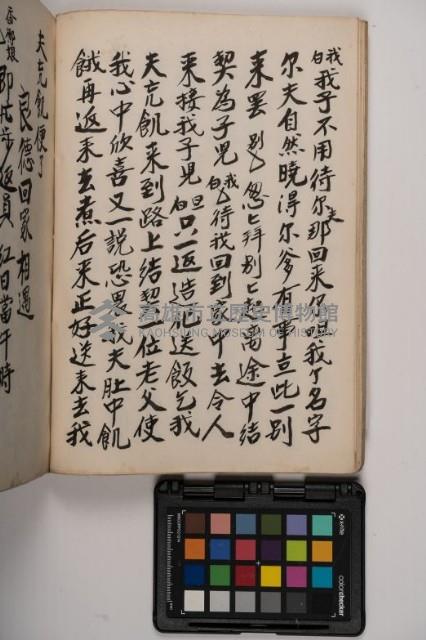 我白我子不用待尔夫那回来你唱我丫名字
尔夫自然曉得尔爹有事在此一别
来罢 别 忽匕拜别匕起离途中结
契為子児 我白待我回到家中去令人
来接我子児 旦白只一返造 送飯乞我
夫充飢来到路上结契一位老父使
我心中欣喜又一説恐畏我夫肚中飢
餓再返来去煮后来正好送来去我
夫充飢便了
良德回家相遇
即共步返員 紅日當午時
高雄市立歷史博物館
KAOHSIUNG MUSEUM OF HISTORY
x-rite
colorchecker